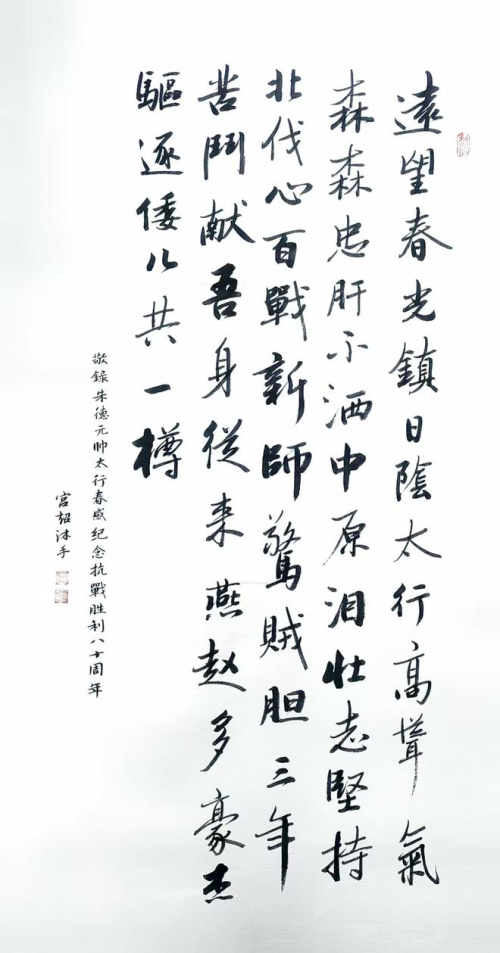 遠望春光鎮日陰太行高聳氣
森森忠肝不洒中原泪壯志堅持
北伐心百戰新師驚賊胆三年
苦鬥献吾身從来燕赵多豪杰
驅逐倭儿共一樽
敬録朱德元帅太行春感纪念抗戰胜利八十周年
宫超沐手